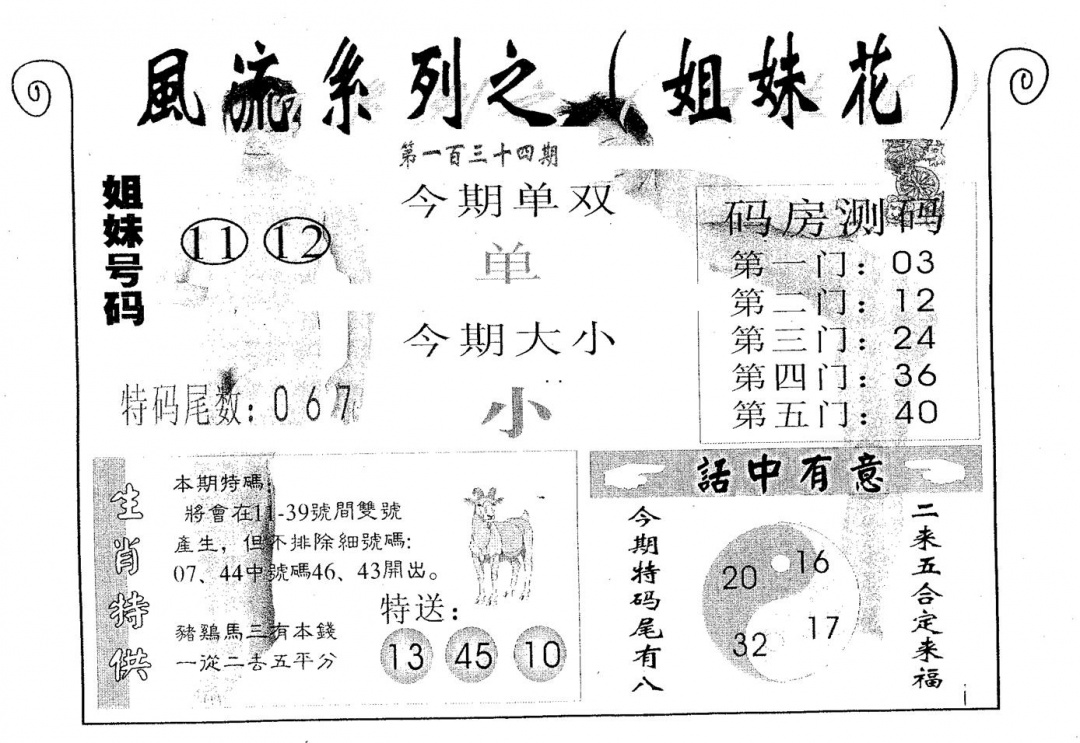 風流系列之（姐妹花）
第一百三十四期
姐妹号码
11 12
特码尾数：067
今期单双
单
今期大小
小
码房测码
第一门：03
第二门：12
第三门：24
第四门：36
第五门：40
生肖特供
本期特碼：
將會在11-39號間雙號
產生，但不排除細號碼：
07、44中號碼46、43開出。
豬鷄馬三有本錢
一從二去五平分
特送：
13 45 10
話中有意
今期特码尾有八
20 16
32 17
二来五合定来福